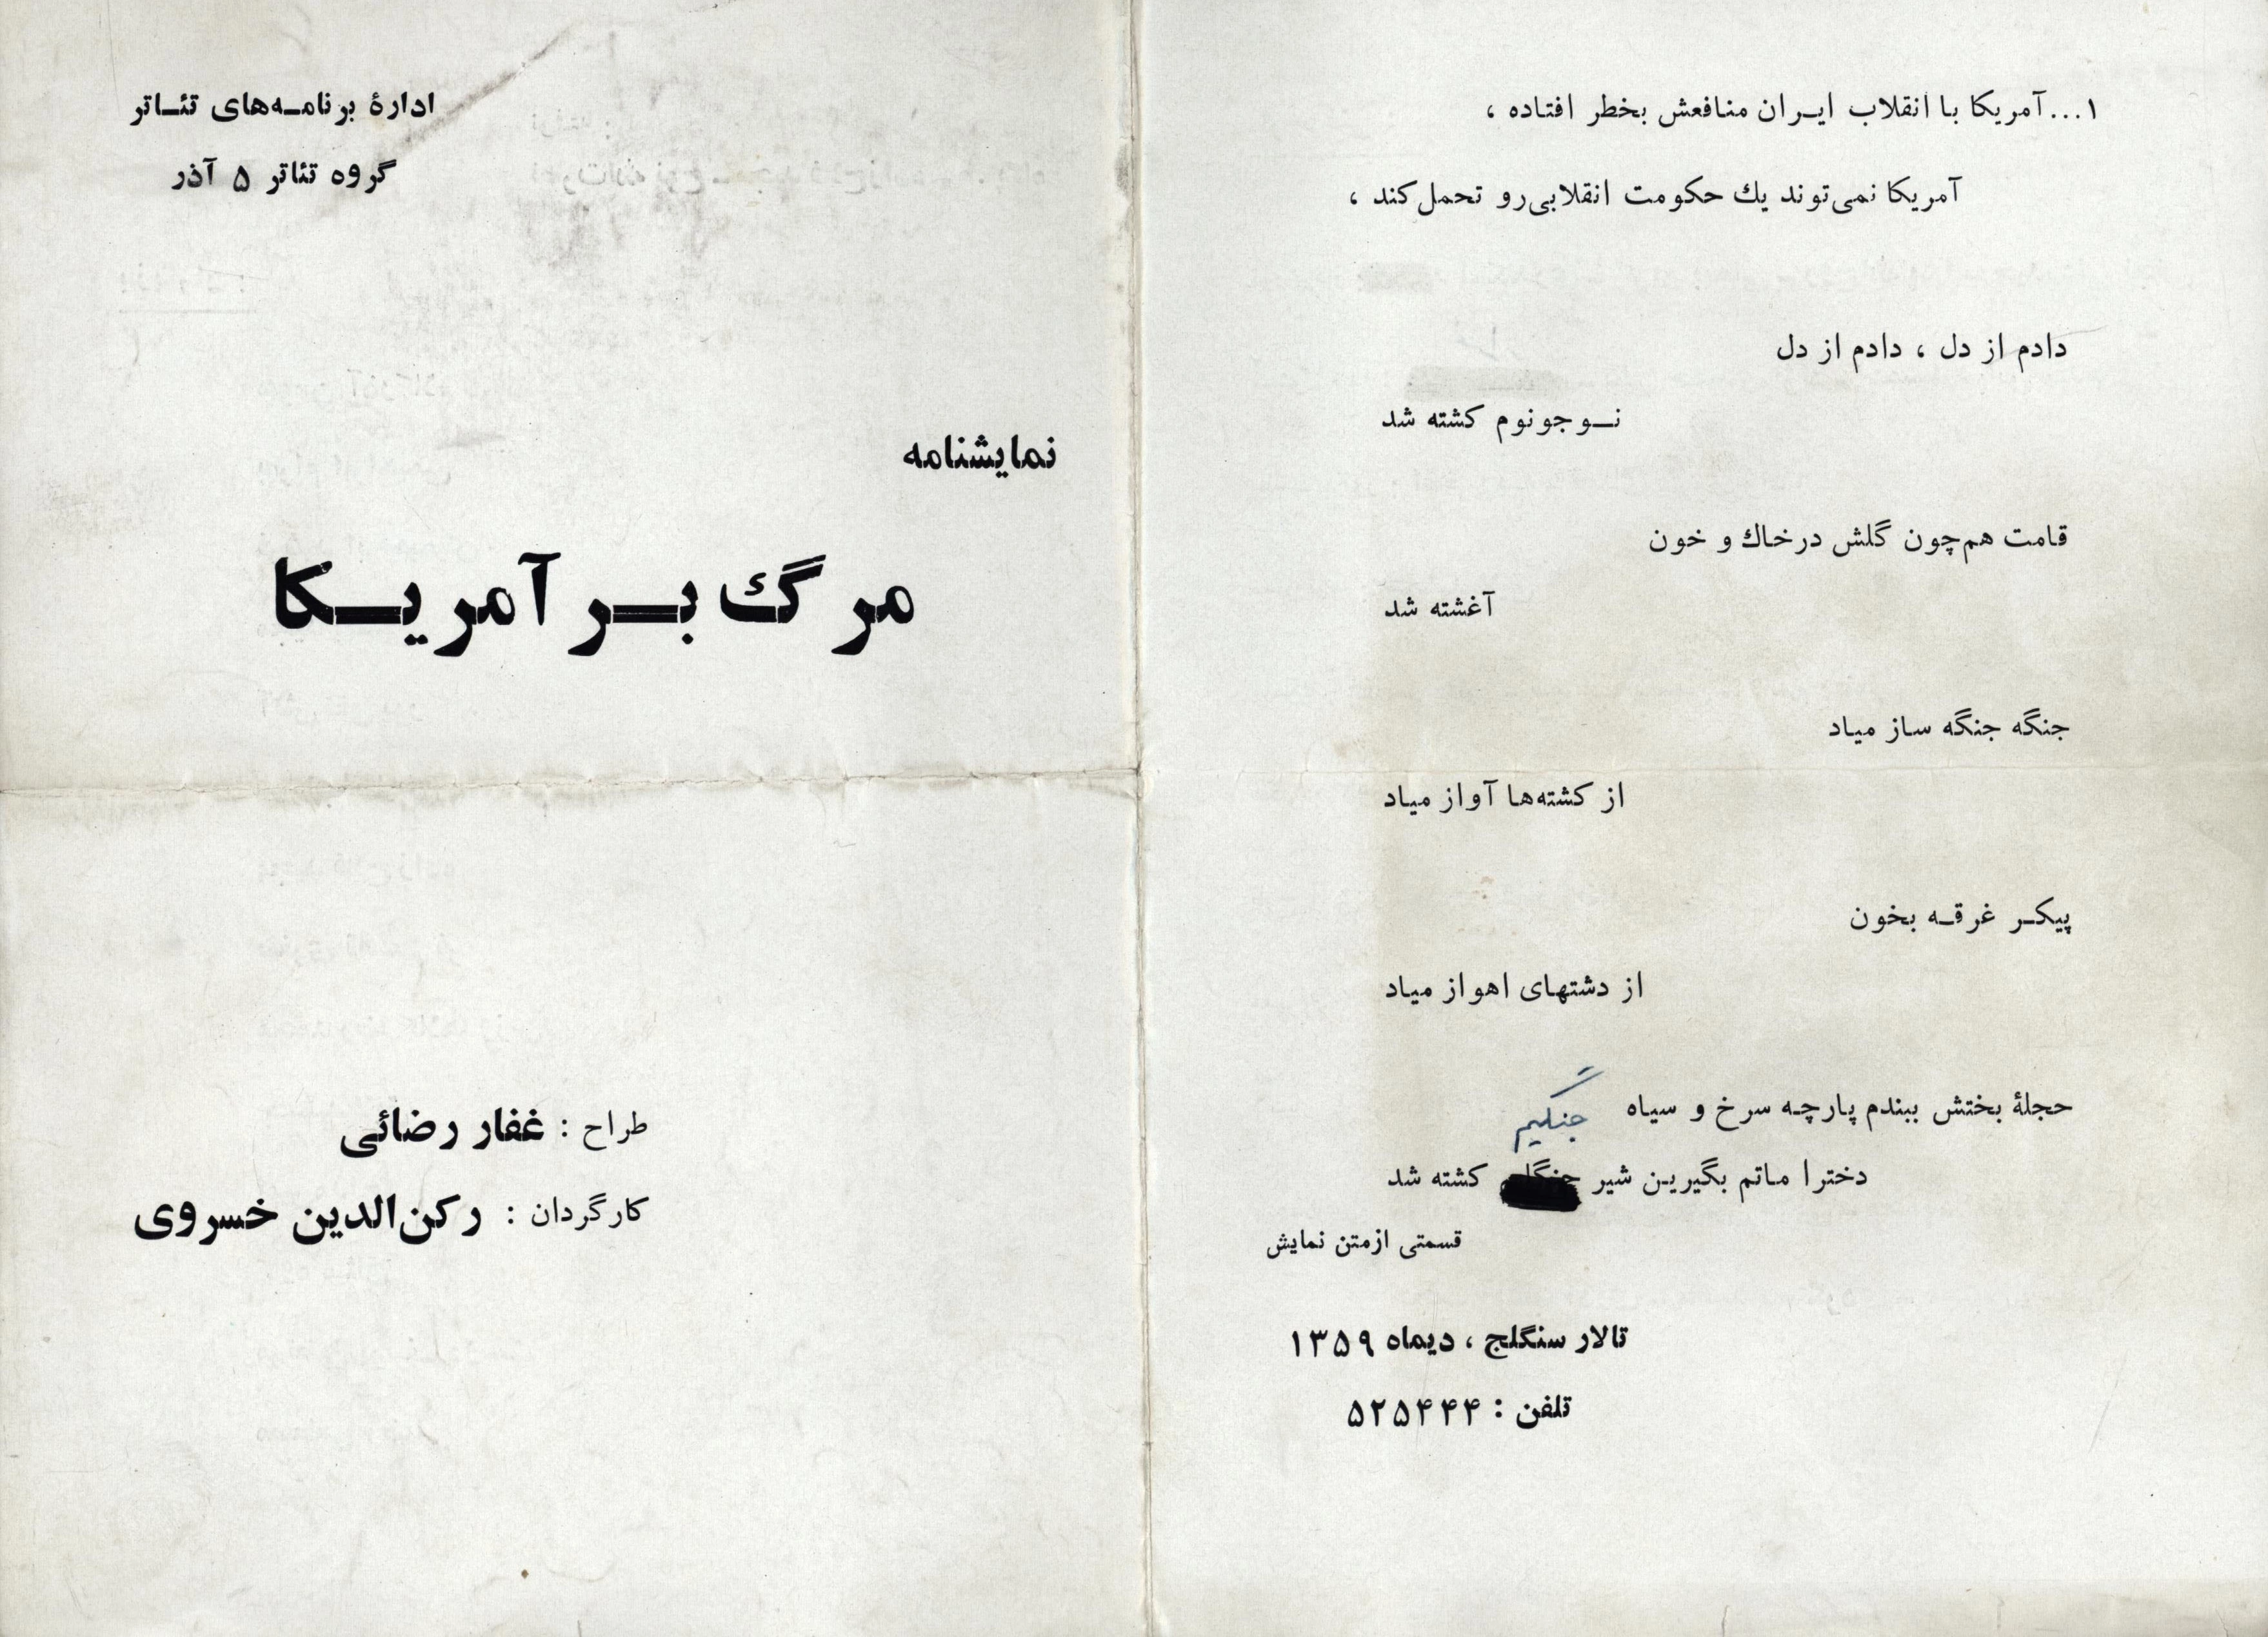 ادارۀ برنامه‌های تئاتر
گروه تئاتر ۵ آذر
نمایشنامه
مرگ بر آمریکا
طراح : غفار رضائی
کارگردان : رکن‌الدین خسروی
۱...آمریکا با انقلاب ایران منافعش بخطر افتاده ،
آمریکا نمی‌توند یك حکومت انقلابی‌رو تحمل‌کند ،
دادم از دل ، دادم از دل
نوجونوم کشته شد
قامت هم‌چون گلش درخاك و خون
آغشته شد
جنگه جنگه ساز میاد
از کشته‌ها آواز میاد
پیکر غرقه بخون
از دشتهای اهواز میاد
حجلۀ بختش ببندم پارچه سرخ و سیاه
جنگیم
دخترا ماتم بگیرین شیر کشته شد
قسمتی ازمتن نمایش
تالار سنگلج ، دیماه ۱۳۵۹
تلفن : ۵۲۵۴۴۴